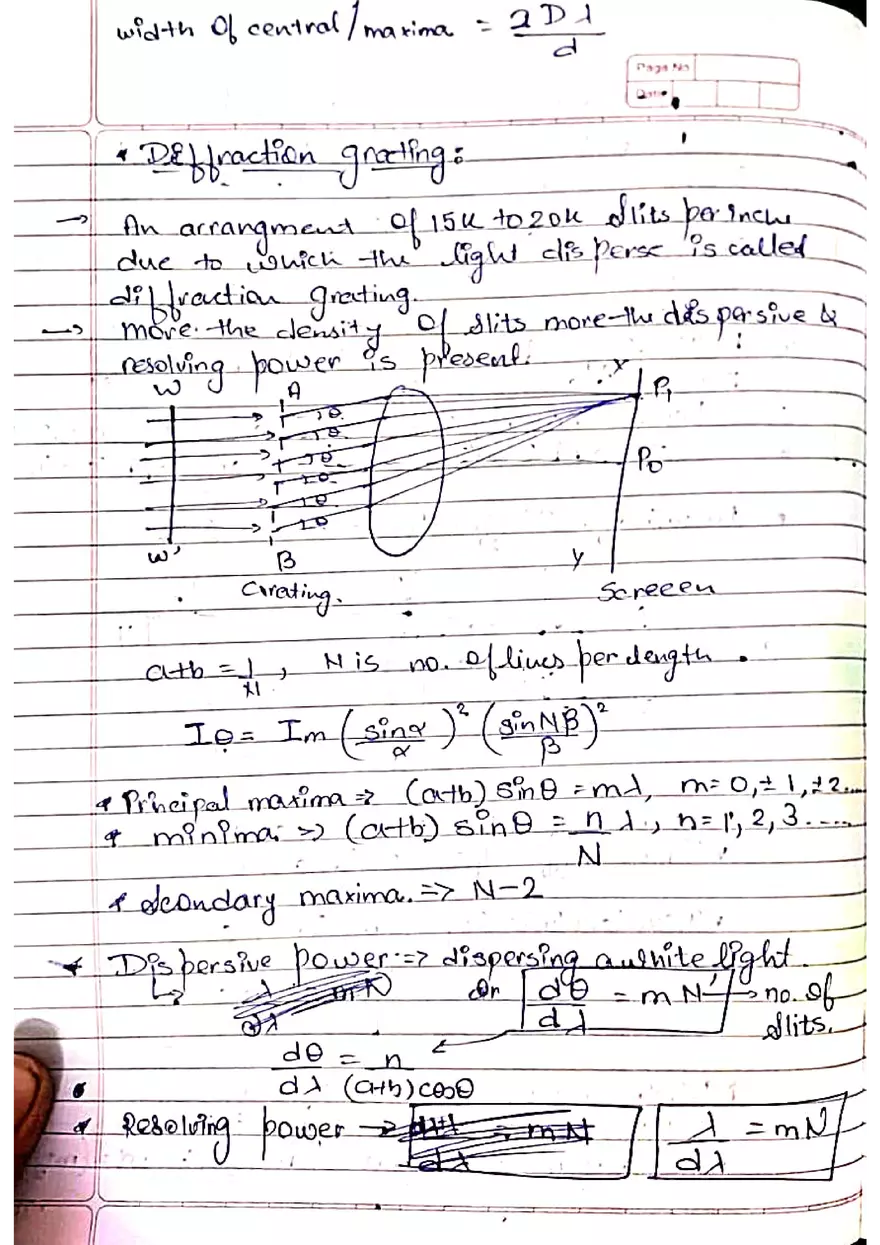 width of central/maxima = 2Dλ/d
Page No
Date
* Diffraction grating:
→ An arrangment of 15k to 20k slits per inch
due to which the light disperse is called
diffraction grating.
→ more the density of slits more the dispersive &
resolving power is present.
W A X P₁
θ
θ
θ
θ
θ
θ
P₀
W' B Y
Grating. Screeen
a+b = 1/N, N is no. of lines per length.
Iθ = Im (sinα/α)² (sinNβ/β)²
* Principal maxima => (a+b) sinθ = mλ, m= 0, ±1, ±2....
* minima => (a+b) sinθ = n/N λ, n=1, 2, 3.....
* Secondary maxima. => N-2
* Dispersive power => dispersing a white light.
or dθ/dλ = mN' → no. of
slits.
dθ/dλ = n/(a+b)cosθ
* Resolving power → λ/dλ = mN